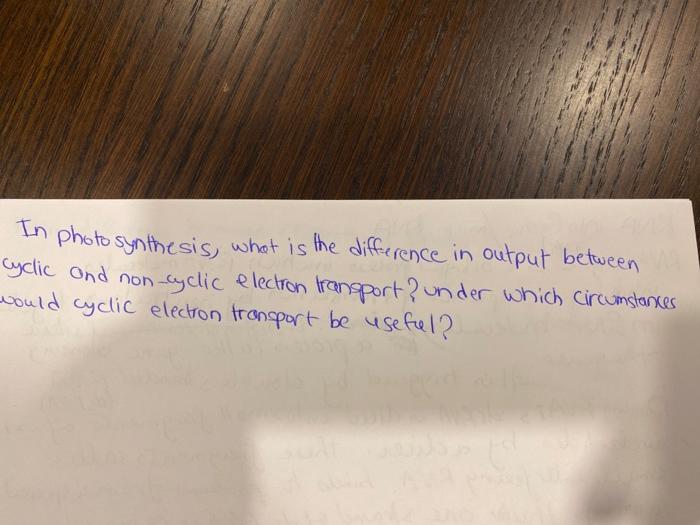 In photosynthesis, what is the difference in output between
cyclic and non-cyclic electron transport? under which circumstances
would cyclic electron transport be useful?